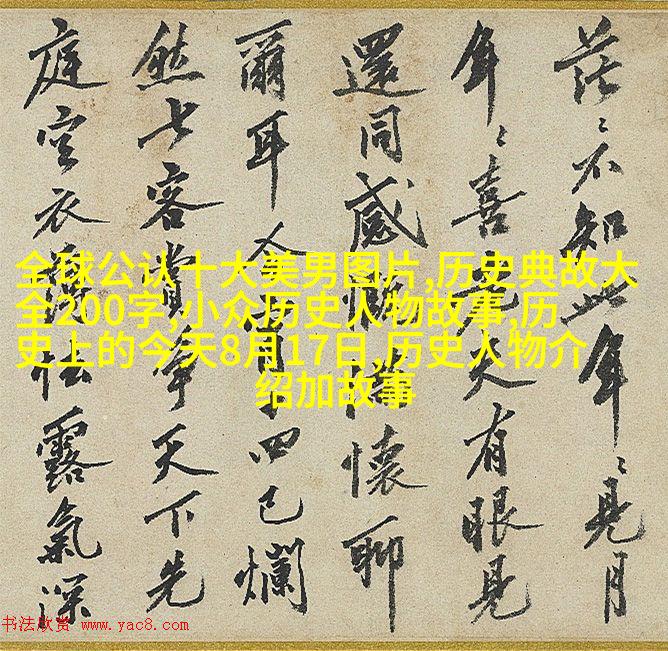 茫〻不知此年〻見月
年〻喜天有眼見
還同感懷聊
爾耳人四已爛
然七客賞爭天下先
庭空衣怯露氣深
全球公认十大美男图片,历史典故大
全200字,小众历史人物故事,历
史上的今天8月17日,历史人物介
绍加故事
书法欣赏 www.yac8.com